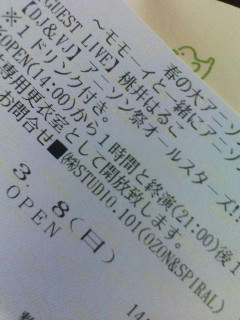 春の大アニソ
～モモーイと一緒にアニソ
【GUEST LIVE】桃井はるこ
【DJ&VJ】アニソン祭オールスターズ!!
※1ドリンク付き。
※OPEN(14:00)から1時間と終演(21:00)後1
専用更衣室として開放致します。
お問合せ■㈱STUDIO.101(OZON&SPIRAL)
3. 8(日)
OPEN
14